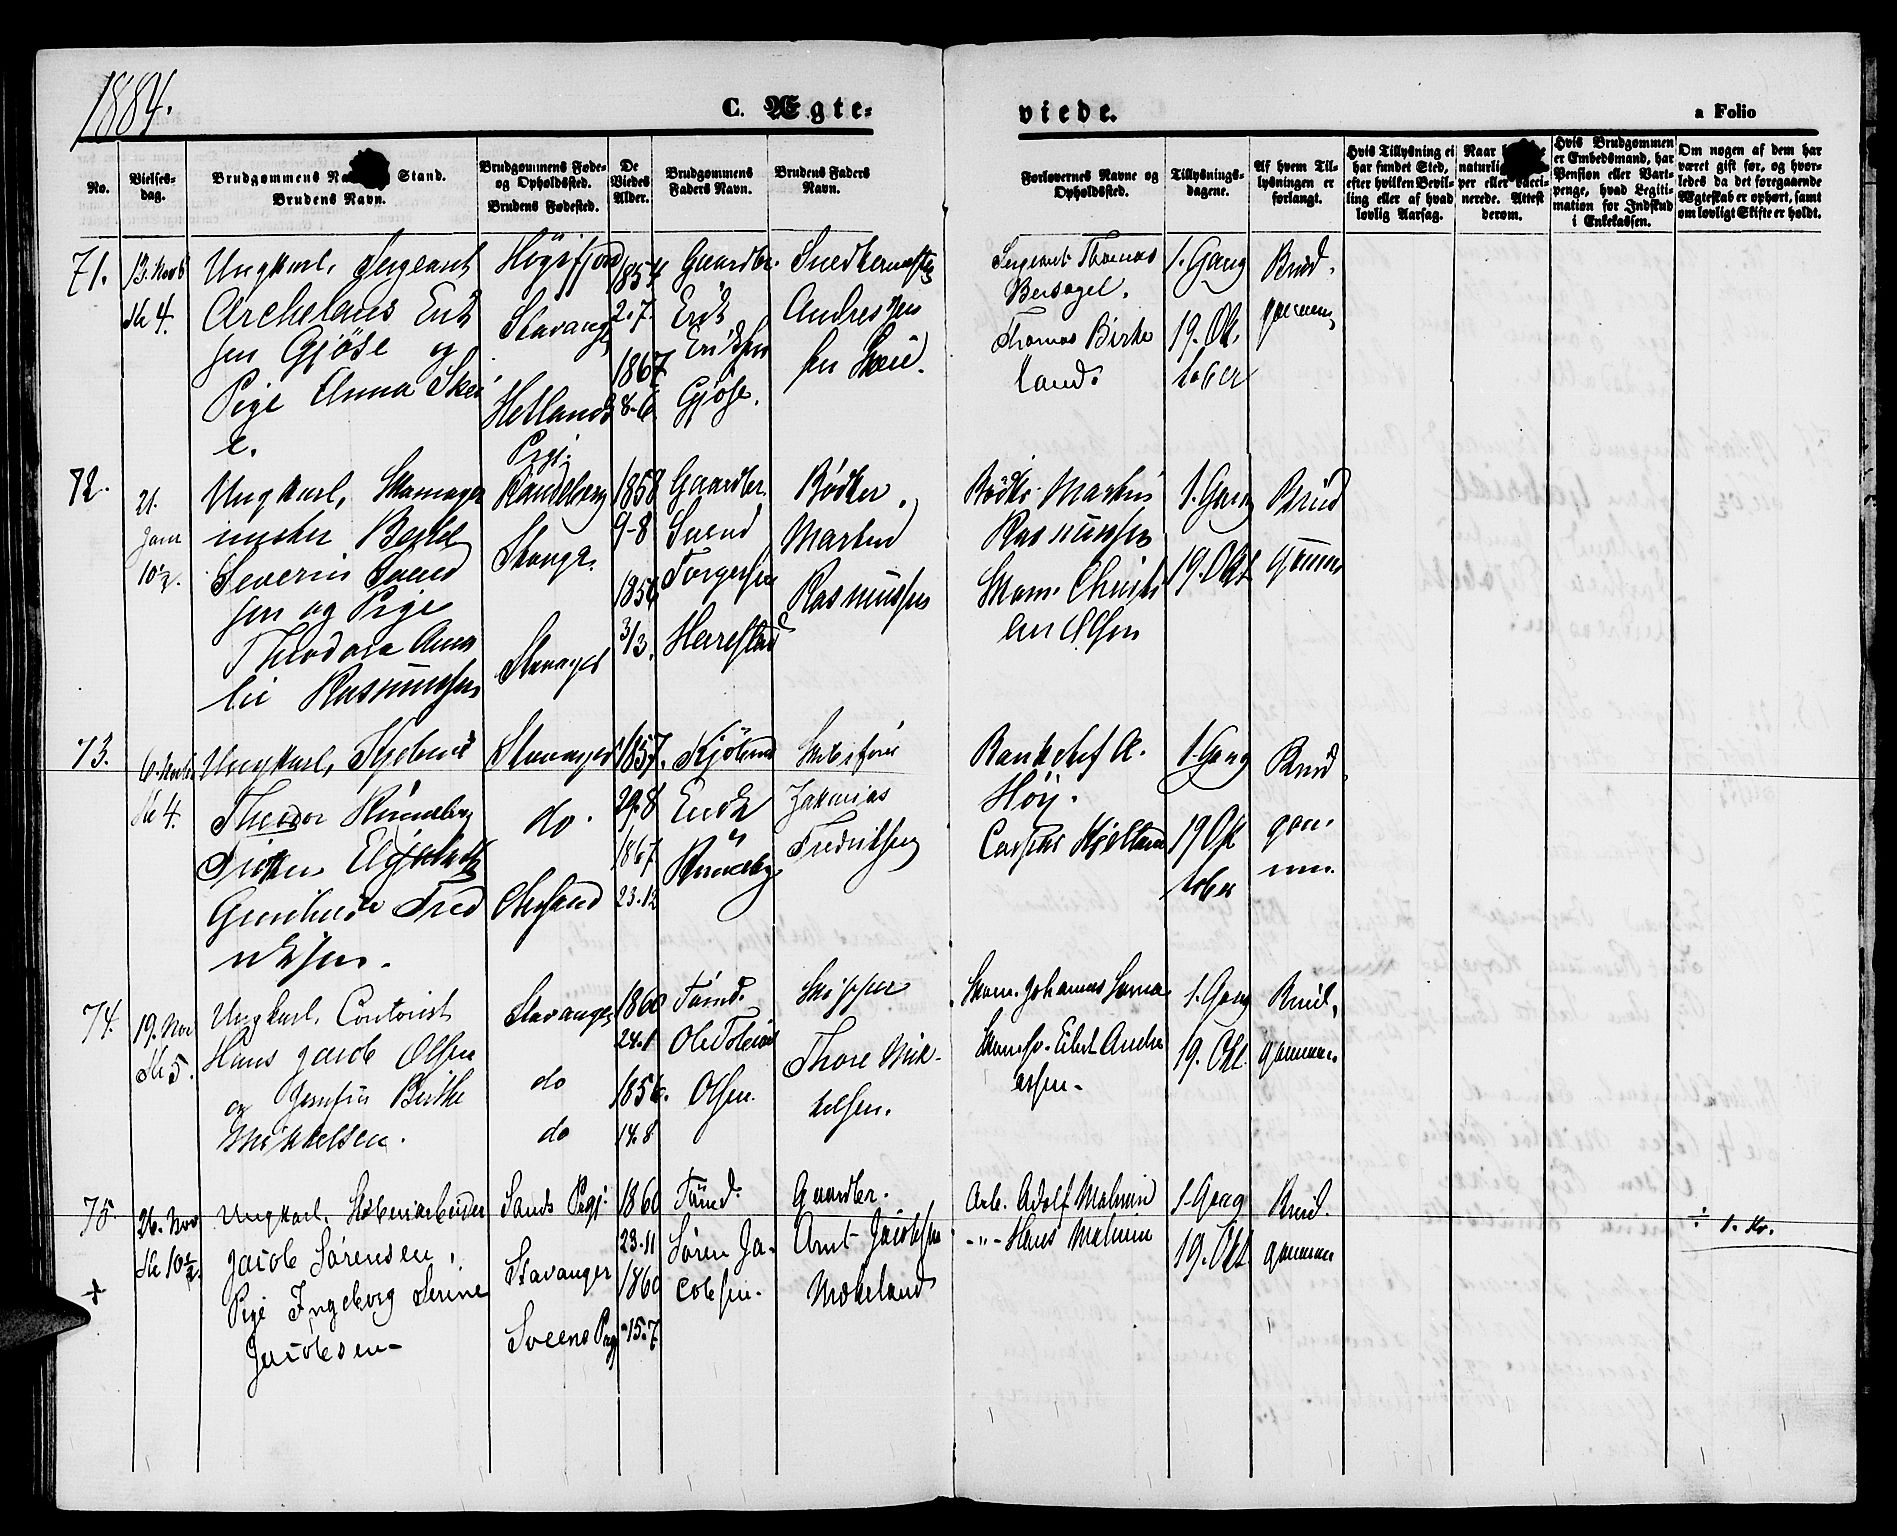 1884.
C. Ægte-
viede.
a Folio
No.
Vielses-
dag.
Brudgommens Na Stand.
Brudens Navn.
Brudgommens Føde-
og Opholdssted.
Brudens Fødested.
De
Viedes
Alder.
Brudgommens
Faders Navn.
Brudens Faders
Navn.
Forlovernes Navne og
Opholdssted.
Tillysnings-
dagene.
Af hvem Til-
lysningen er
forlangt.
Hvis Tillysning ei
har fundet Sted,
efter hvilken Bevil-
ling eller af hvad
lovlig Aarsag.
Naar
naturlig
per eller vacci-
nerede. Attest
derom.
Hvis Brudgommen
er Embedsmand, har
Pension eller Vart-
penge, hvad Legiti-
mation for Indskud
i Enkekassen.
Om nogen af dem har
været gift før, og hvor-
ledes da det foregaaende
Ægteskab er ophørt, samt
om lovligt Skifte er holdt.
71.
13. Novb
Kl 4.
Ungkarl, Sergeant
Archelaus Erik
sen Gjöse og
Pige Anna Skei
e.
Högsfjord
Stavanger
Hetlands
Prgj.
1854
2-7
1867
8-6
Gaardbr.
Erik
Eriksen
Gjöse.
Snedkermester
Andreas
sen Skeie.
Sergeant Thomas
Bersagel.
Thomas Birke
land.
1. Gang
19. Ok.
tober
Brud.
gommen
72.
21.
10½.
Ungkarl, Skomager
mester Bertel
Severin Svend
sen og Pige
Theodora Ama
lie Rasmussen
Randeberg
Stavgr.
Stavanger
1858
9-8
1856
3/3.
Gaardbr.
Svend
Torgersen
Harestad
Bödker
Martin
Rasmussen
Bödkr. Martin
Rasmussen
Skom. Christi
an Olsen
1. Gang
19. Okt
Brud
gommen
73.
6. Novb
Kl 4.
Ungkarl,
Theodor Rünneberg
Fröken Elisabeth
Gunhilde Fred
riksen.
Stavanger
do.
Chrsand
1857.
29-8
1867
23-12
Kjöbmd
Endre
Rünneberg
Skibsförer
Zakarias
Fredriksen
Bankchef A.
Höy.
Casper Kjelland
1. Gang
19 Ok
tober
Brud
gom-
men.
74.
19. Nov
Kl 5.
Ungkarl, Contorist
Hans Jacob Olsen
og Jomfru Berthe
Mikkelsen.
Stavanger
do
do
1860
24-1
1856.
14-8
Tömd.
Ole Tobias
Olsen.
Skipper
Thore Mik-
kelsen.
Skom. Johannes
Eilert Andre
assen.
1. Gang
19. Okt.
Brud.
gommen.
75.
26. Nov
Kl 10½.
+
Ungkarl, Fabrikarbeider
Jacob Sörensen,
Pige Ingeborg Serine
Jacobsen
Sands Prgj.
Stavanger
Sveens Prgj
1860
23-11
1860
15-7
Tömd.
Sören Ja-
cobsen.
Gaardbr.
Amt Jacobsen
Mökeland
Arb. Adolf Malmin
-"- Hans Malmin
1. Gang
19. Okt
Brud.
gommen
÷ 1. Kr.